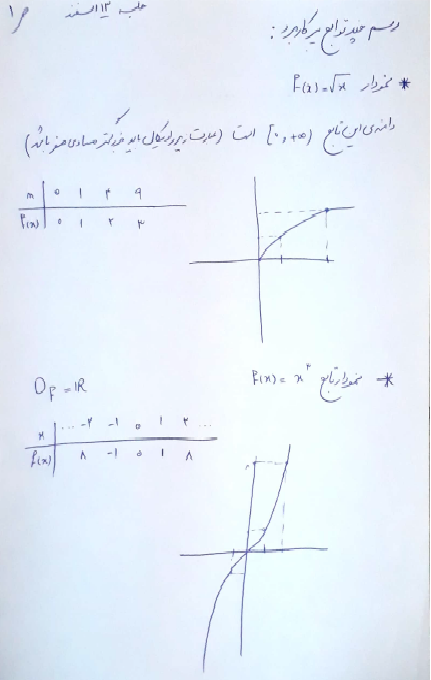 جلسه ۱۳ اسفند ۱
رسم چند تابع پرکاربرد :
* نمودار f(x)=√x
دامنه‌ی این تابع [۰,+∞) است (عبارت زیر رادیکال باید بزرگتر مساوی صفر باشد)
x | ۰ ۱ ۴ ۹
f(x) | ۰ ۱ ۲ ۳
* نمودار تابع f(x) = x³
D_f = IR
x | ... -۲ -۱ ۰ ۱ ۲ ...
f(x) | ۸ -۱ ۰ ۱ ۸